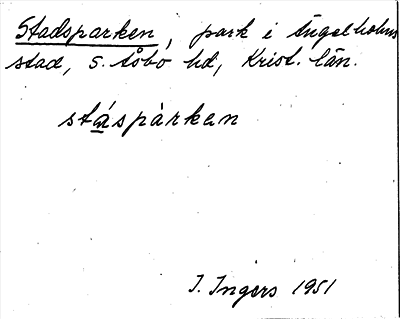 Stadsparken, park i Ängelholms
stad, S. Åsbo hd, Krist. län.
stáspàrkan
I. Ingers 1951